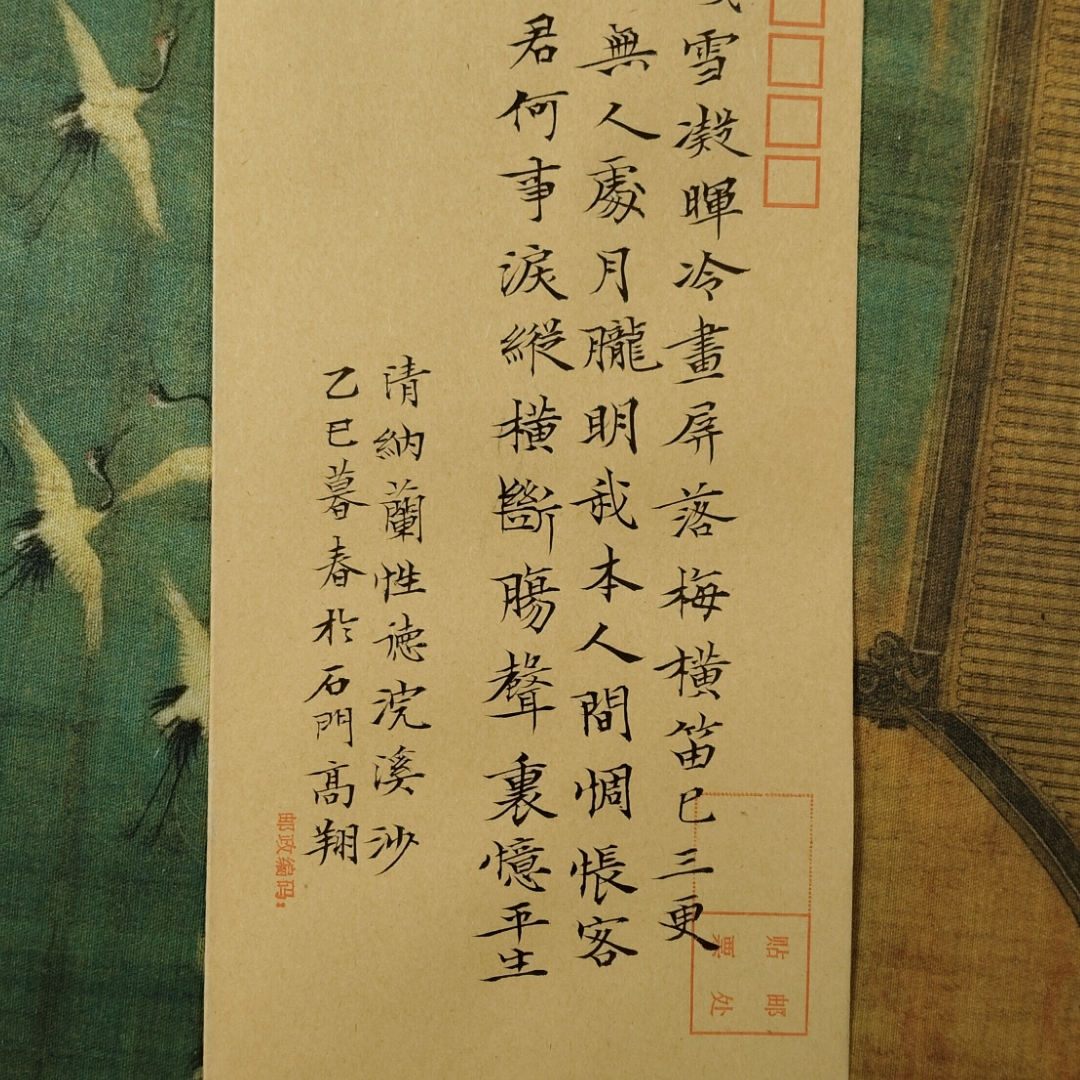 雪凝暉冷畫屏落梅横笛已三更
無人處月朧明我本人間惆悵客
君何事淚縱横斷腸聲裏憶平生
清納蘭性德浣溪沙
乙巳暮春於石門高翔
贴邮
票处
邮政编码: